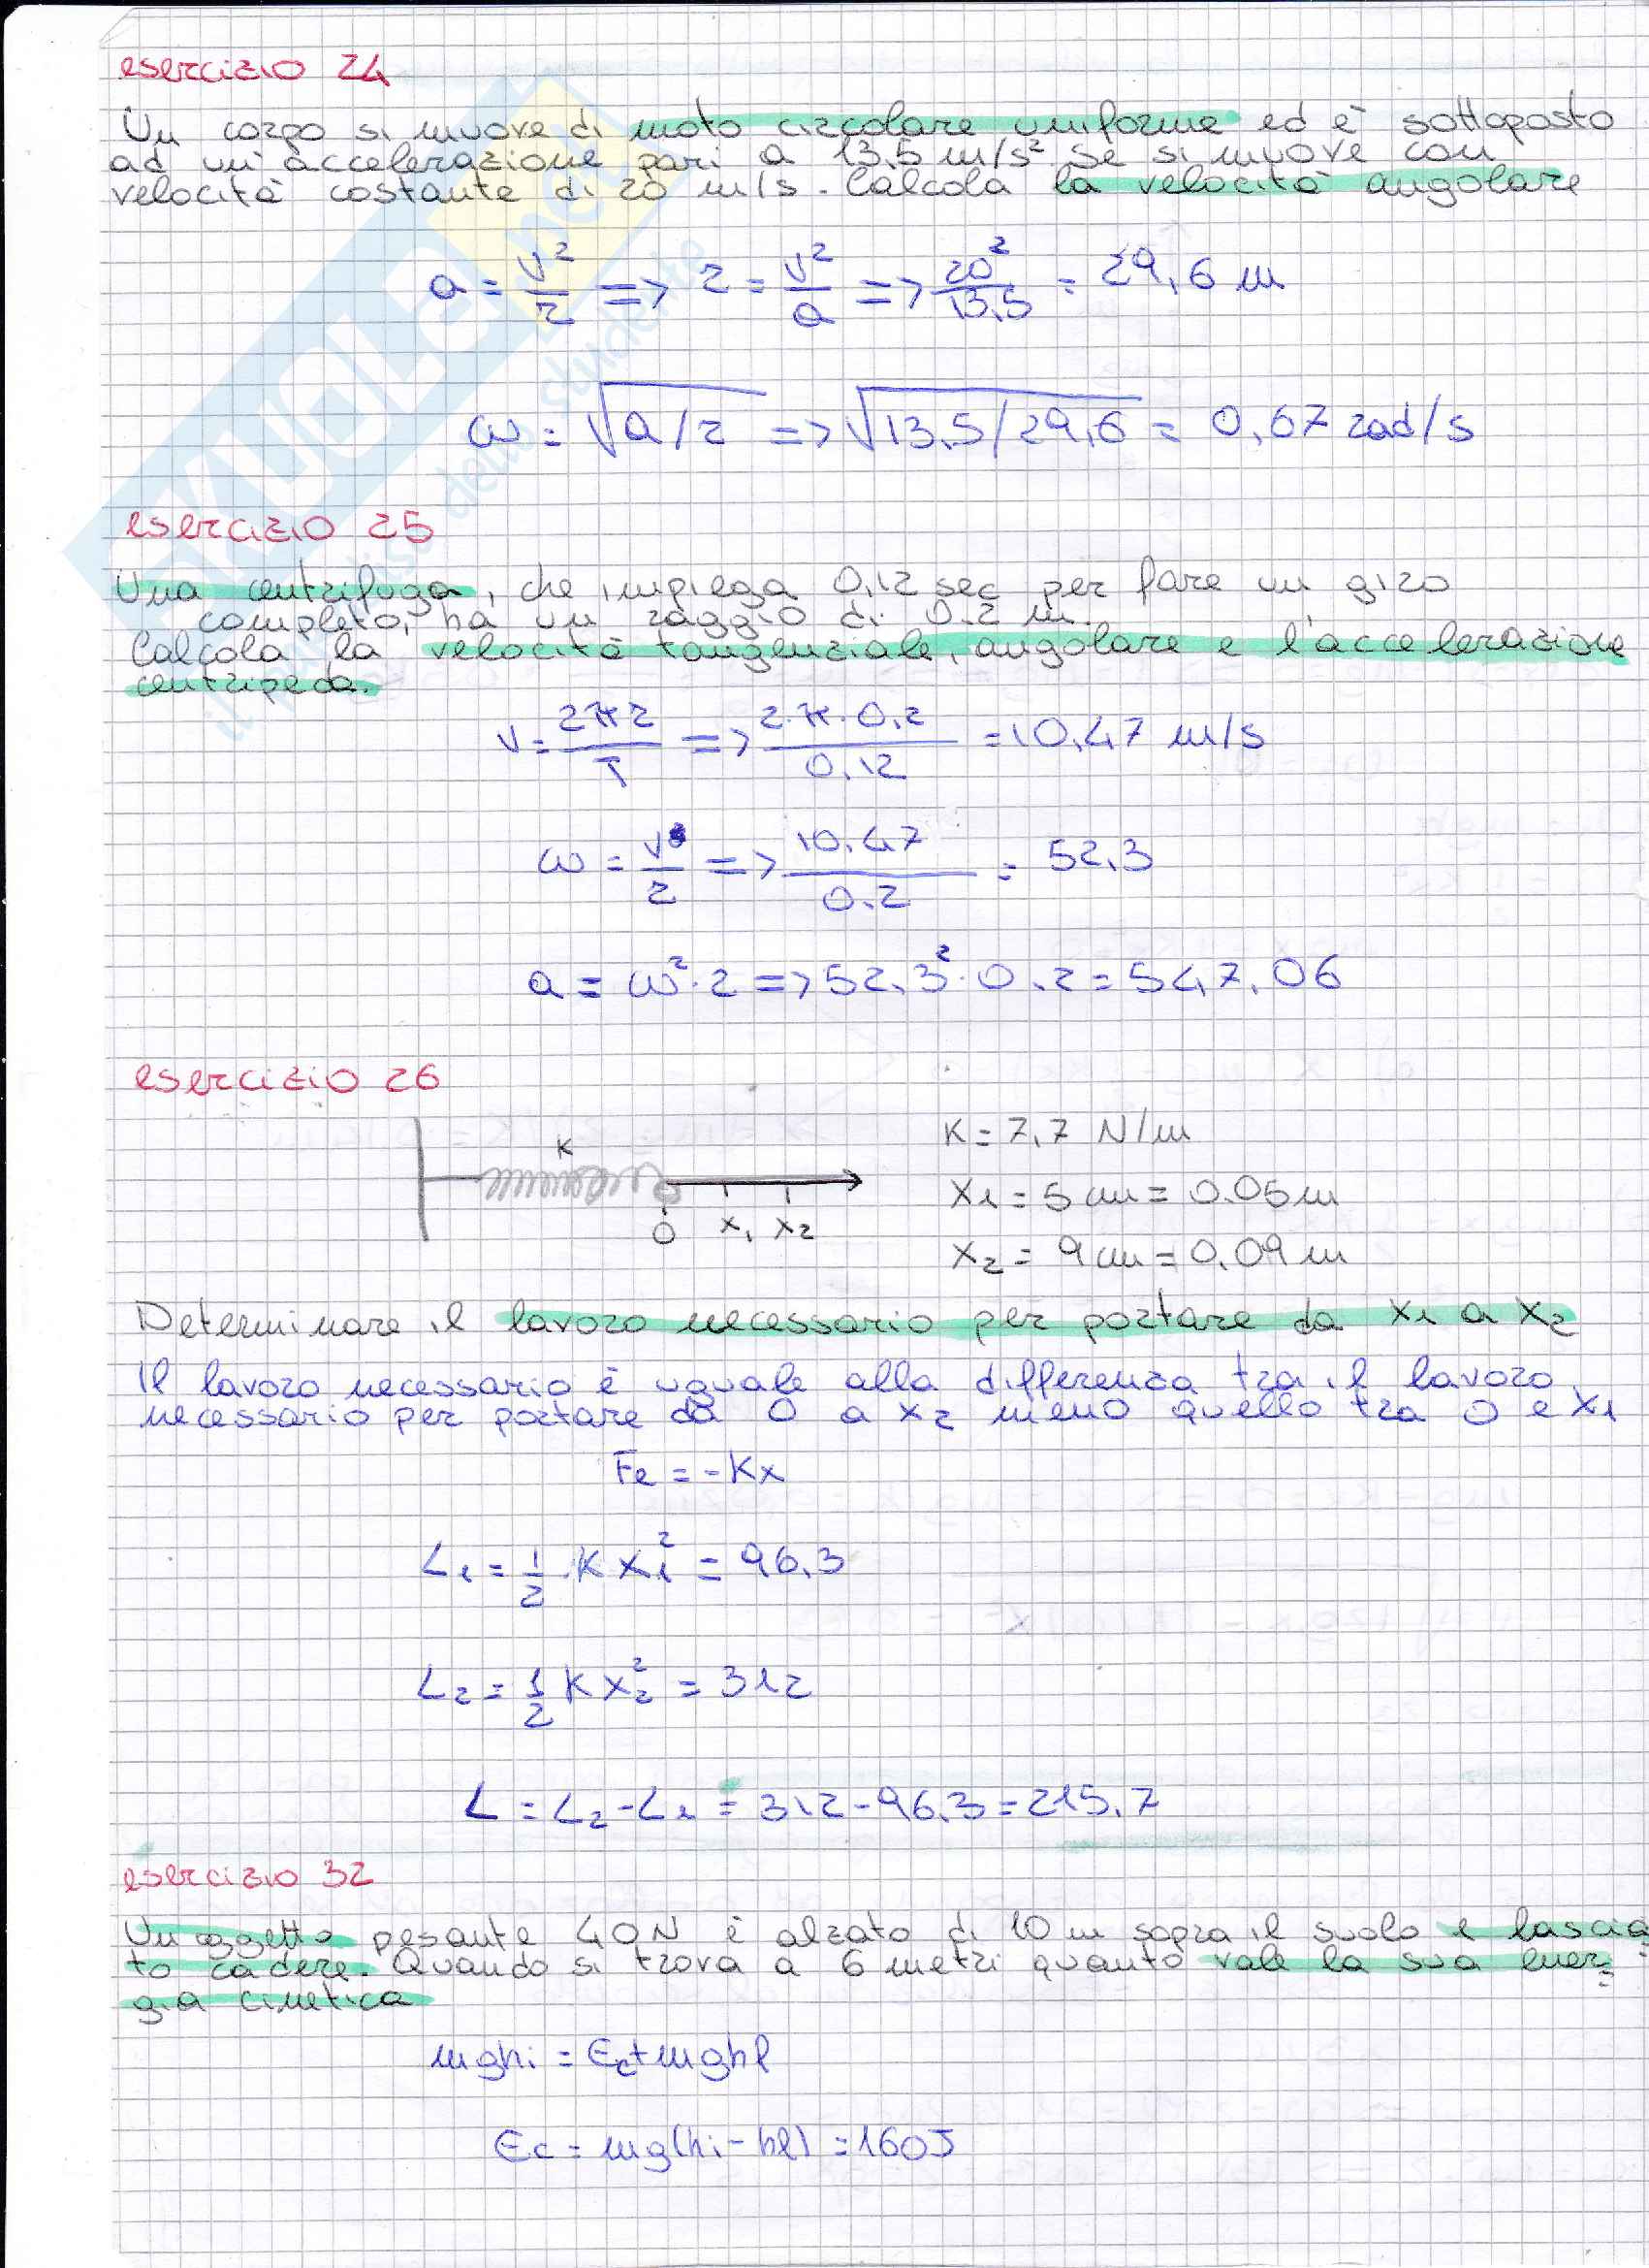 esercizio 24
Un corpo si muove di moto circolare uniforme ed è sottoposto
ad un'accelerazione pari a 13.5 m/s². Se si muove con
velocità costante di 20 m/s. Calcola la velocità angolare
a = v²/r => r = v²/a => 20²/13.5 = 29,6 m
ω = √a/r => √13.5/29,6 = 0,67 rad/s
esercizio 25
Una centrifuga, che impiega 0,12 sec per fare un giro
completo, ha un raggio di 0.2 m.
Calcola la velocità tangenziale, angolare e l'accelerazione
centripeda.
v = 2πr/T => 2·π·0.2/0.12 = 10.47 m/s
ω = v/r => 10.47/0.2 = 52.3
a = ω²·r => 52.3²·0.2 = 547.06
esercizio 26
K
0 x₁ x₂
K = 7,7 N/m
x₁ = 5 cm = 0.05 m
x₂ = 9 cm = 0.09 m
Determinare il lavoro necessario per portare da x₁ a x₂
Il lavoro necessario è uguale alla differenza tra il lavoro
necessario per portare da 0 a x₂ meno quello tra 0 e x₁
Fe = -Kx
L₁ = 1/2 K x₁² = 96.3
L₂ = 1/2 K x₂² = 312
L = L₂ - L₁ = 312 - 96.3 = 215.7
esercizio 32
Un oggetto pesante 40N è alzato di 10 m sopra il suolo e lascia
to cadere. Quando si trova a 6 metri quanto vale la sua ener
gia cinetica
mghi = Ec + mghf
Ec = mg(hi - hf) = 160J